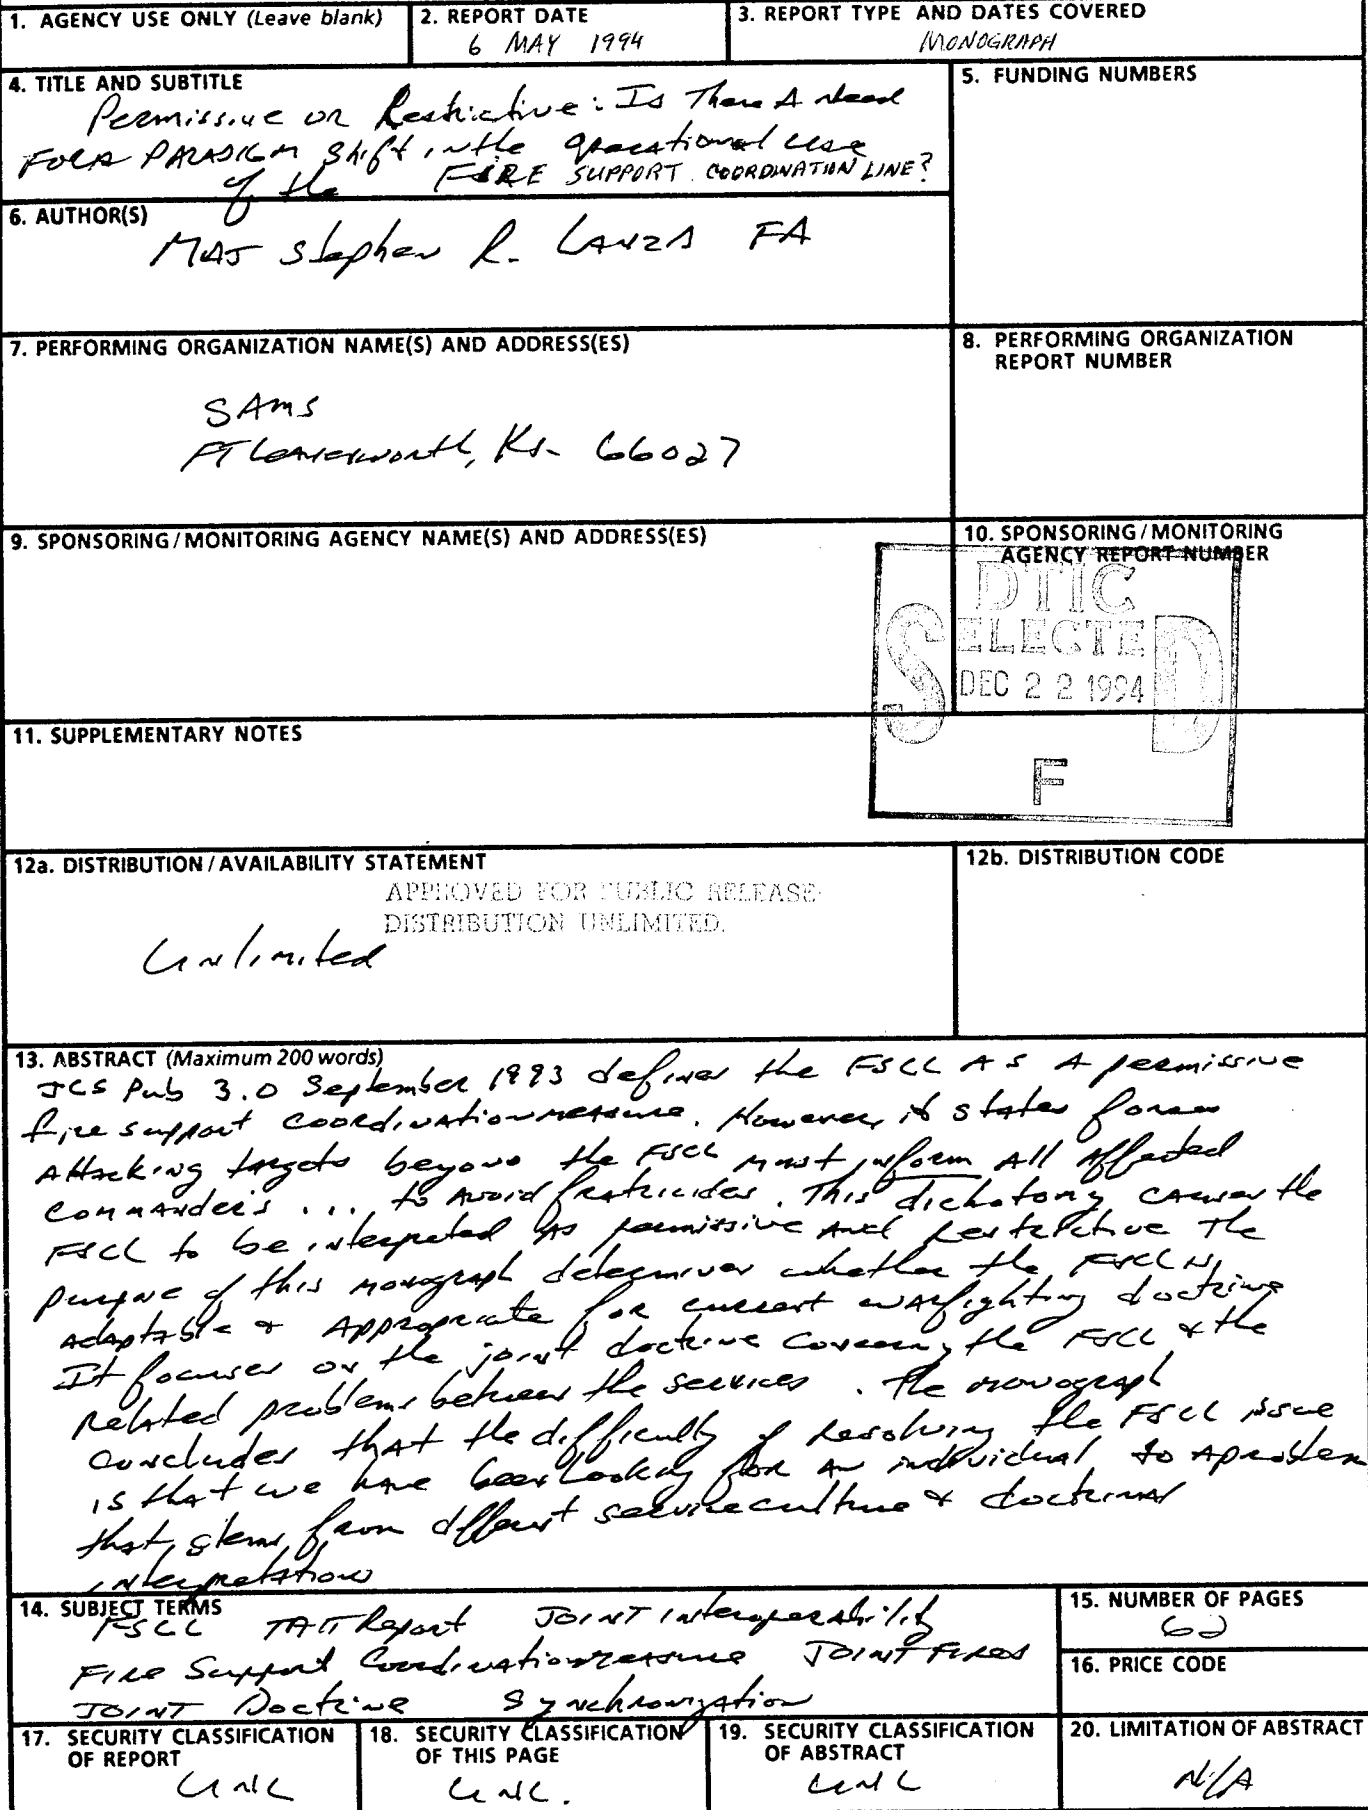 1. AGENCY USE ONLY (Leave blank)
2. REPORT DATE
6 MAY 1994
3. REPORT TYPE AND DATES COVERED
MONOGRAPH
4. TITLE AND SUBTITLE
Permissive or Restrictive: Is There A Need
FOR A PARADIGM Shift in the operational use
of the FIRE SUPPORT COORDINATION LINE?
5. FUNDING NUMBERS
6. AUTHOR(S)
MAJ Stephen R. LANZA FA
7. PERFORMING ORGANIZATION NAME(S) AND ADDRESS(ES)
SAMS
FT Leavenworth, Ks. 66027
8. PERFORMING ORGANIZATION
REPORT NUMBER
9. SPONSORING/MONITORING AGENCY NAME(S) AND ADDRESS(ES)
10. SPONSORING/MONITORING
AGENCY REPORT NUMBER
DTIC
S ELECTE D
DEC 2 2 1994
F
11. SUPPLEMENTARY NOTES
12a. DISTRIBUTION/AVAILABILITY STATEMENT
APPROVED FOR PUBLIC RELEASE
DISTRIBUTION UNLIMITED.
Unlimited
12b. DISTRIBUTION CODE
13. ABSTRACT (Maximum 200 words)
JCS Pub 3.0 September 1993 defines the FSCL AS A permissive
fire support coordination measure. However, it states forces
Attacking targets beyond the FSCL must inform All Affected
Commanders ... to Avoid fratricides. This dichotomy causes the
FSCL to be interpreted as permissive and restrictive The
purpose of this monograph determines whether the FSCL is
adaptable & Appropriate for current warfighting doctrine
It focuses on the joint doctrine concerning the FSCL & the
Related problems between the services. The monograph
concludes that the difficulty of resolving the FSCL issue
is that we have been looking for an individual to a problem
that stems from different service culture & doctrinal
interpretations
14. SUBJECT TERMS
FSCL TAIT Report JOINT interoperability
FIRE Support Coordination measure JOINT FIRES
JOINT Doctrine Synchronization
15. NUMBER OF PAGES
62
16. PRICE CODE
17. SECURITY CLASSIFICATION
OF REPORT
UNC
18. SECURITY CLASSIFICATION
OF THIS PAGE
UNC.
19. SECURITY CLASSIFICATION
OF ABSTRACT
UNC
20. LIMITATION OF ABSTRACT
N/A